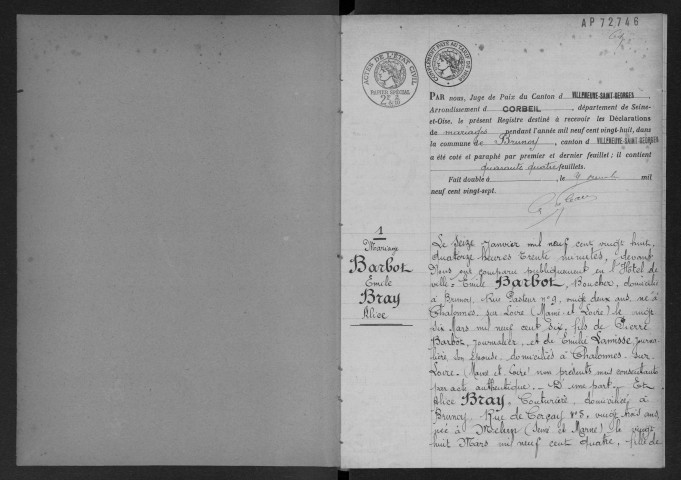 AP 72746
ACTES DE L'ÉTAT CIVIL
PAPIER SPÉCIAL
PAR nous, Juge de Paix du Canton d VILLENEUVE-SAINT-GEORGES,
Arrondissement d CORBEIL, département de Seine-
et-Oise, le présent Registre destiné à recevoir les Déclarations
de mariages pendant l'année mil neuf cent vingt-huit, dans
la commune de Brunoy, canton d VILLENEUVE-SAINT-GEORGES
a été coté et paraphé par premier et dernier feuillet; il contient
quarante quatre feuillets.
Fait double à , le mil
neuf cent vingt-sept.
1
Mariage
Barbot
Emile
Bray
Alice
Le seize Janvier mil neuf cent vingt huit,
quatorze heures trente minutes, devant
Nous ont comparu publiquement en l'Hôtel de
ville: Emile Barbot, Boucher, domicilié
à Brunoy, Rue Pasteur n° 9, vingt deux ans, né à
Chalonnes sur Loire (Maine et Loire) le vingt
six Mars mil neuf cent six, fils de Pierre
Barbot, journalier, et de Emilie Lamisse, journa-
lière, son épouse, domiciliés à Chalonnes-sur-
Loire (Maine et Loire) non présents mais consentants
par acte authentique. - D'une part. - Et
Alice Bray, Couturière, domiciliée à
Brunoy, Rue de Cerçay n° 5, vingt trois ans
née à Melun (Seine et Marne) le vingt
huit Mars mil neuf cent quatre, fille de